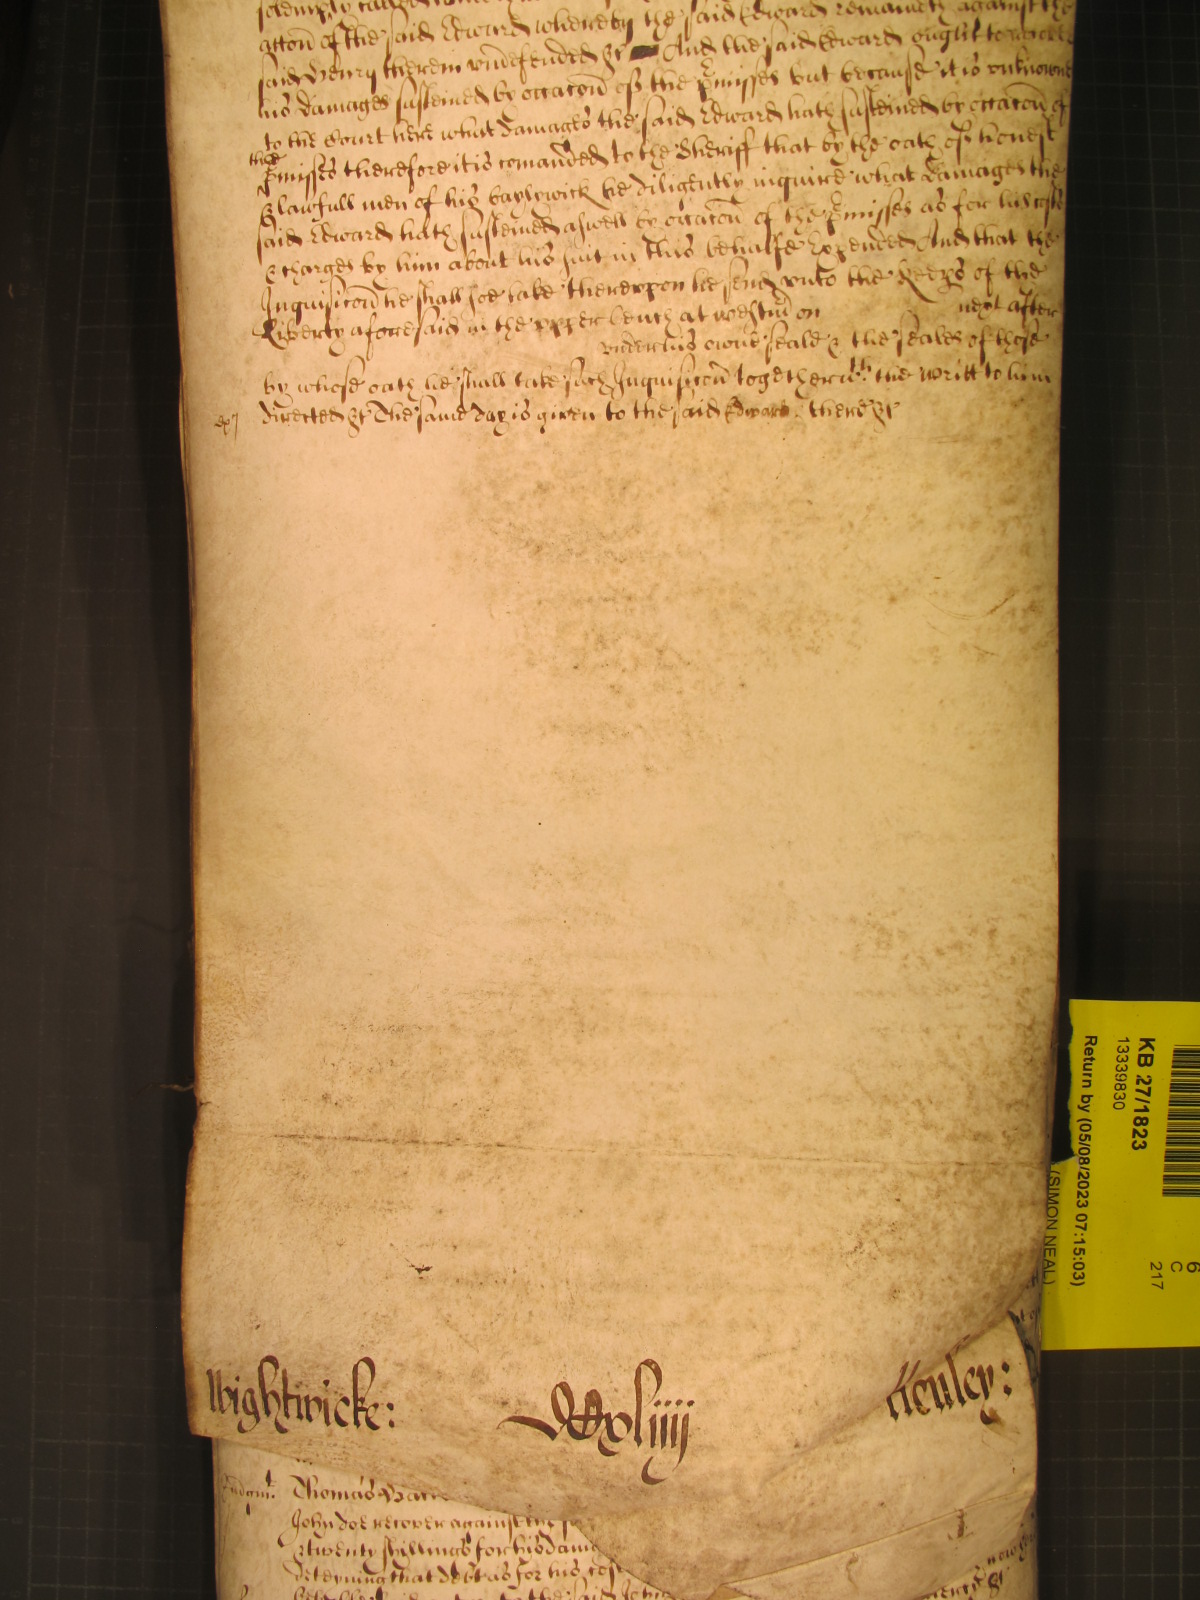 solemply called
attorn of the said Edward whereby the said Edward remaineth against the
said Henry therein undefended &c And the said Edward ought to recover
his damages susteined by occacon of the pmisses but because it is unknowne
to the Court here what damages the said Edward hath susteined by occacon of
the
pmisses therefore it is comanded to the Sheriff that by the oath of honest
& lawfull men of his baylywick he diligently inquire what damages the
said Edward hath susteined aswell by occacon of the pmisses as for his costs
& charges by him about his suit in this behalfe expended And that the
Inquisicon he shall soe take thereupon he send unto the Keeps of the
Liberty aforesaid in the upper bench at Westm on next after
under his owne seale & the seales of those
by whose oath he shall take such Inquisicon together wth the writt to him
directed &c The same day is given to the said Edward there &c
Wightwicke: xliiij Henley:
Judgmt. Thomas
John doe recover against the
& twenty shillings for his dam
deteyning that debt as for his cost
the said John
KB 27/1823
13339830
Return by (05/08/2023 07:15:03)
(SIMON NEAL)
6
C
217